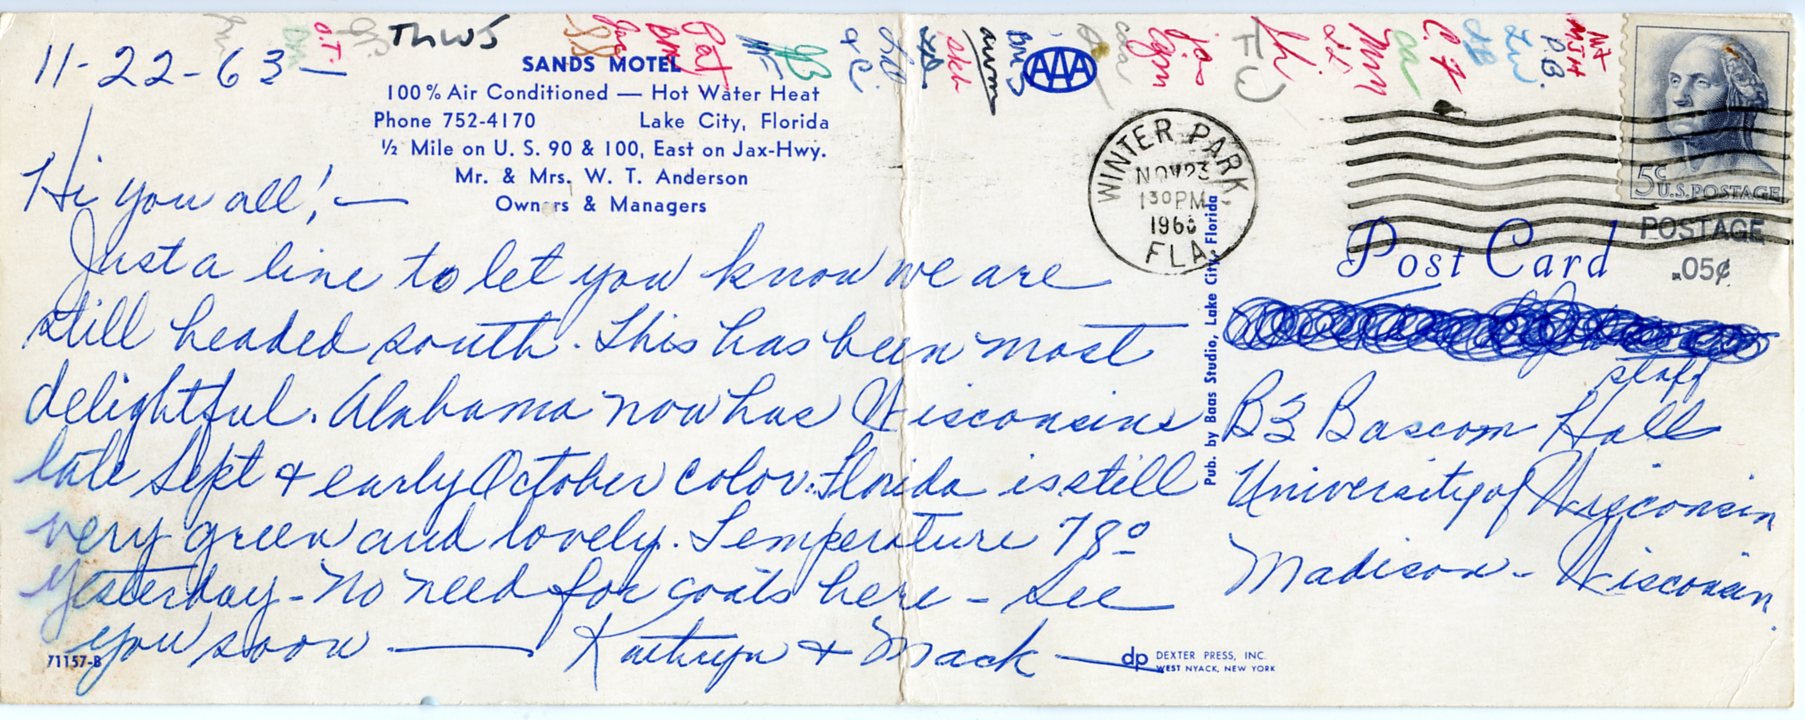 11-22-63-
THWS
SANDS MOTEL
100% Air Conditioned — Hot Water Heat
Phone 752-4170 Lake City, Florida
½ Mile on U. S. 90 & 100, East on Jax-Hwy.
Mr. & Mrs. W. T. Anderson
Owners & Managers
Hi you all! —
Just a line to let you know we are
still headed south. This has been most
delightful. Alabama now has Wisconsins
late Sept & early October color. Florida is still
very green and lovely. Temperature 78°
yesterday - No need for coats here - See
you soon — Kathryn & Mack —
71157-B
AAA
WINTER PARK
NOV 23
1 30 PM
1963
FLA.
5¢ U.S. POSTAGE
POSTAGE
.05¢
Post Card
staff
B3 Bascom Hall
University of Wisconsin
Madison - Wisconsin
Pub. by Baas Studio, Lake City, Florida
dp DEXTER PRESS, INC.
WEST NYACK, NEW YORK